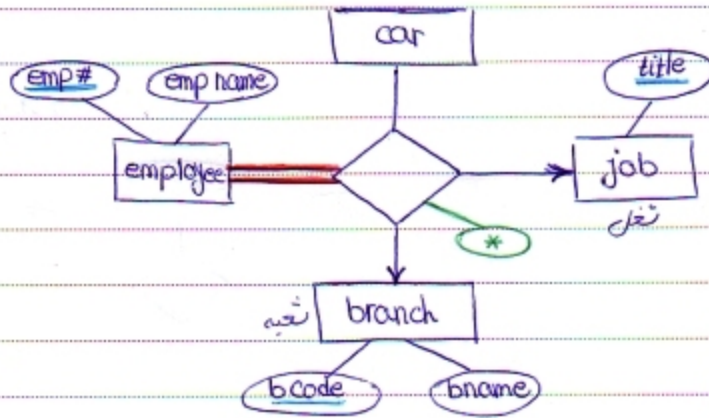 car
emp#
emp name
title
employee
job
شغل
*
branch
شعبه
bcode
bname